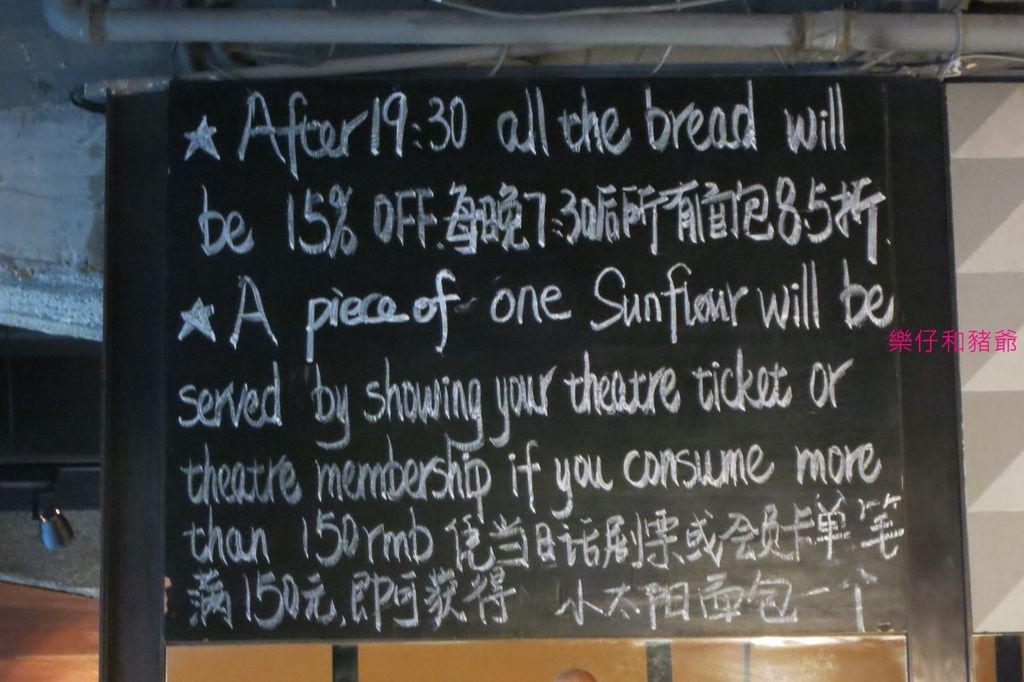 ★ After 19:30 all the bread will
be 15% OFF. 每晚7:30后所有面包8.5折.
★ A piece of one Sunflour will be
樂仔和豬爺
served by showing your theatre ticket or
theatre membership if you consume more
than 150rmb 凭当日话剧票或会员卡单笔
满150元,即可获得 小太阳面包一个